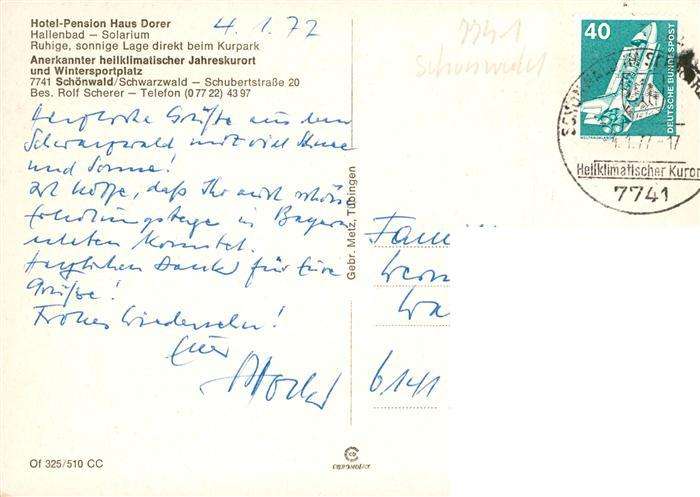 Hotel-Pension Haus Dorer
Hallenbad – Solarium
Ruhige, sonnige Lage direkt beim Kurpark
Anerkannter heilklimatischer Jahreskurort
und Wintersportplatz
7741 Schönwald/Schwarzwald – Schubertstraße 20
Bes. Rolf Scherer – Telefon (0 77 22) 43 97
4.1.77
Herzliche Grüße aus dem
Schwarzwald mit viel Schnee
und Sonne!
Ich hoffe, daß Ihr auch schöne
Erholungstage in Bayern
erleben konntet.
Herzlichen Dank für Eure
Grüße!
Frohes Wiedersehn!
Euer
Of 325/510 CC
Gebr. Metz, Tübingen
7741
Schönwald
40
DEUTSCHE BUNDESPOST
4.1.77-17
Heilklimatischer Kurort
7741
Fam
6141